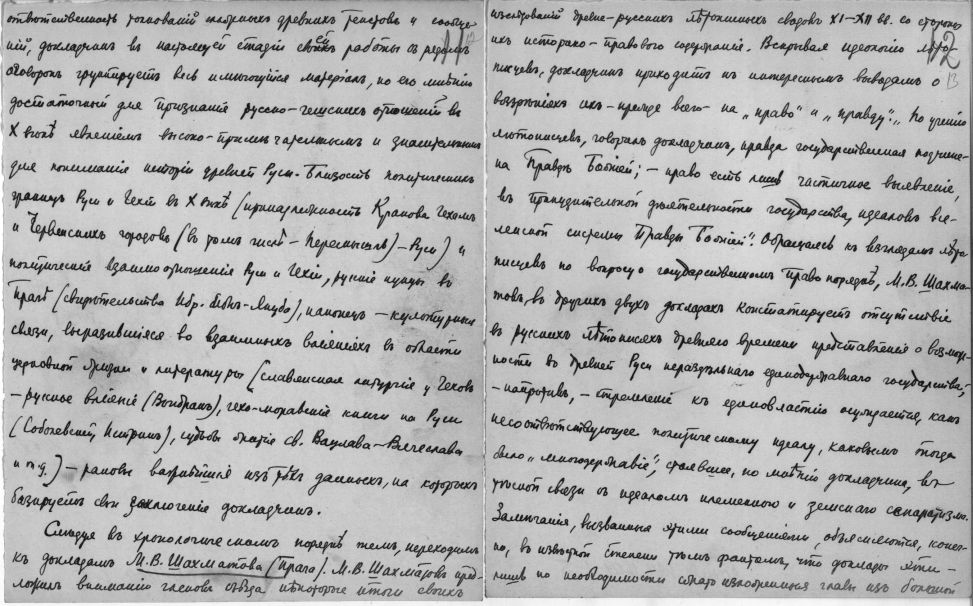 отвѣтственность толкованій избранныхъ древнихъ текстовъ и сообще-
ній, докладчикъ въ настоящей стадіи своихъ работы съ рядомъ
оговорокъ группируетъ весь имѣющійся матеріалъ, по его мнѣнію
достаточный для признанія русско-чешскихъ отношеній въ
X вѣкѣ явленіемъ высоко-примѣчательнымъ и значительнымъ
для пониманія исторіи древней Руси. Близость политическихъ
границъ Руси и Чехіи въ X вѣкѣ (принадлежность Кракова Чехамъ
и Червенскихъ городовъ (въ томъ числѣ - Перемышль) - Руси) и
политическія взаимоотношенія Руси и Чехіи, русскіе купцы въ
Прагѣ (свидѣтельства Ибр. ибнъ-Якуба), наконецъ - культурныя
связи, выразившіяся во взаимныхъ вліяніяхъ въ области
церковной жизни и литературы (славянская литургія у Чеховъ
- русское вліяніе (Вондракъ), чехо-моравскія книги на Руси
(Соболевскій, Истринъ), судьбы братіе св. Вацлава - Вячеслава
и т.д.) - таковы важнѣйшія изъ тѣхъ данныхъ, на которыхъ
базируетъ свои заключенія докладчикъ.
Слѣдуя въ хронологическомъ порядкѣ темъ, переходимъ
къ докладамъ М.В. Шахматова (Прага). М.В. Шахматовъ пред-
ложилъ вниманію членовъ съѣзда нѣкоторые итоги своихъ
12
изслѣдованій древне-русскихъ лѣтописныхъ сводовъ XI-XII вв. со стороны
ихъ историко-правового содержанія. Вскрывая идеологію лѣто-
писцевъ, докладчикъ приходитъ къ интереснымъ выводамъ о
13
воззрѣніяхъ ихъ - прежде всего - на „право" и „правду". „По ученію
лѣтописцевъ, говорилъ докладчикъ, правда государственная подчине-
на Правдѣ Божіей; - право есть лишь частичное выявленіе,
въ принудительной дѣятельности государства, идеаловъ все-
ленской системы Правды Божіей". Обращаясь къ взглядамъ лѣто-
писцевъ по вопросу о государственномъ правопорядкѣ, М.В. Шахма-
товъ въ другихъ двухъ докладахъ констатируетъ отсутствіе
въ русскихъ лѣтописяхъ древняго времени представленія о возмож-
ности въ древней Руси нераздѣльнаго единодержавнаго государства;
- напротивъ, - стремленіе къ единовластію осуждается, какъ
несоотвѣтствующее политическому идеалу, каковымъ тогда
было „многодержавіе", стоявшее, по мнѣнію докладчика, въ
тѣсной связи съ идеаломъ племенного и земскаго сепаратизма.
Замѣчанія, вызванныя этими сообщеніями, объясняются, конеч-
но, въ извѣстной степени тѣмъ фактомъ, что доклады эти -
лишь по необходимости сжато изложенныя главы изъ большой